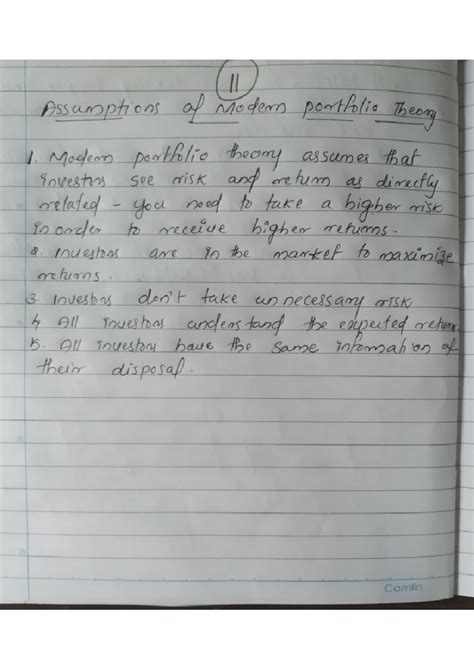 11
Assumptions of Modern portfolio Theory.
1. Modern portfolio theory assumes that
investors see risk and return as directly
related - you need to take a higher risk
in order to receive higher returns.
2. Investors are in the market to maximize
returns.
3. Investors don't take unnecessary risk
4. All investors understand the expected return
5. All investors have the same information at
their disposal.
Camlin